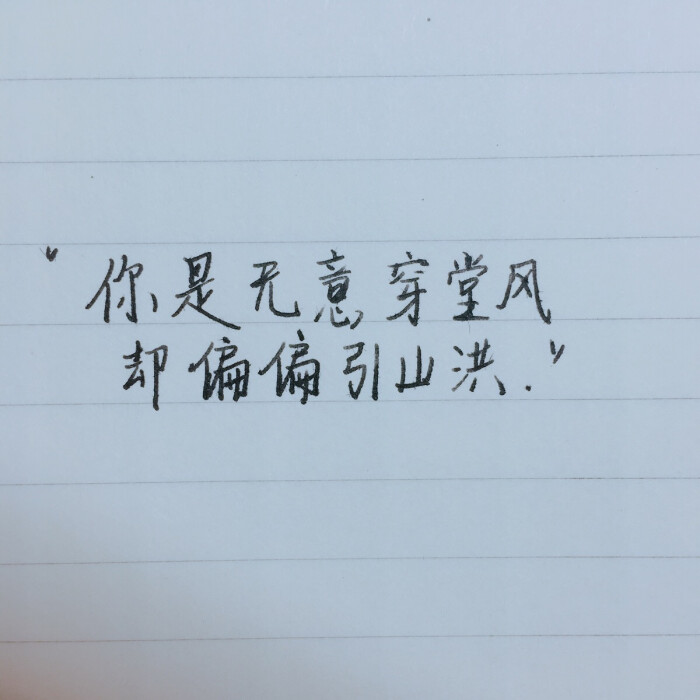 "你是无意穿堂风
却偏偏引山洪."